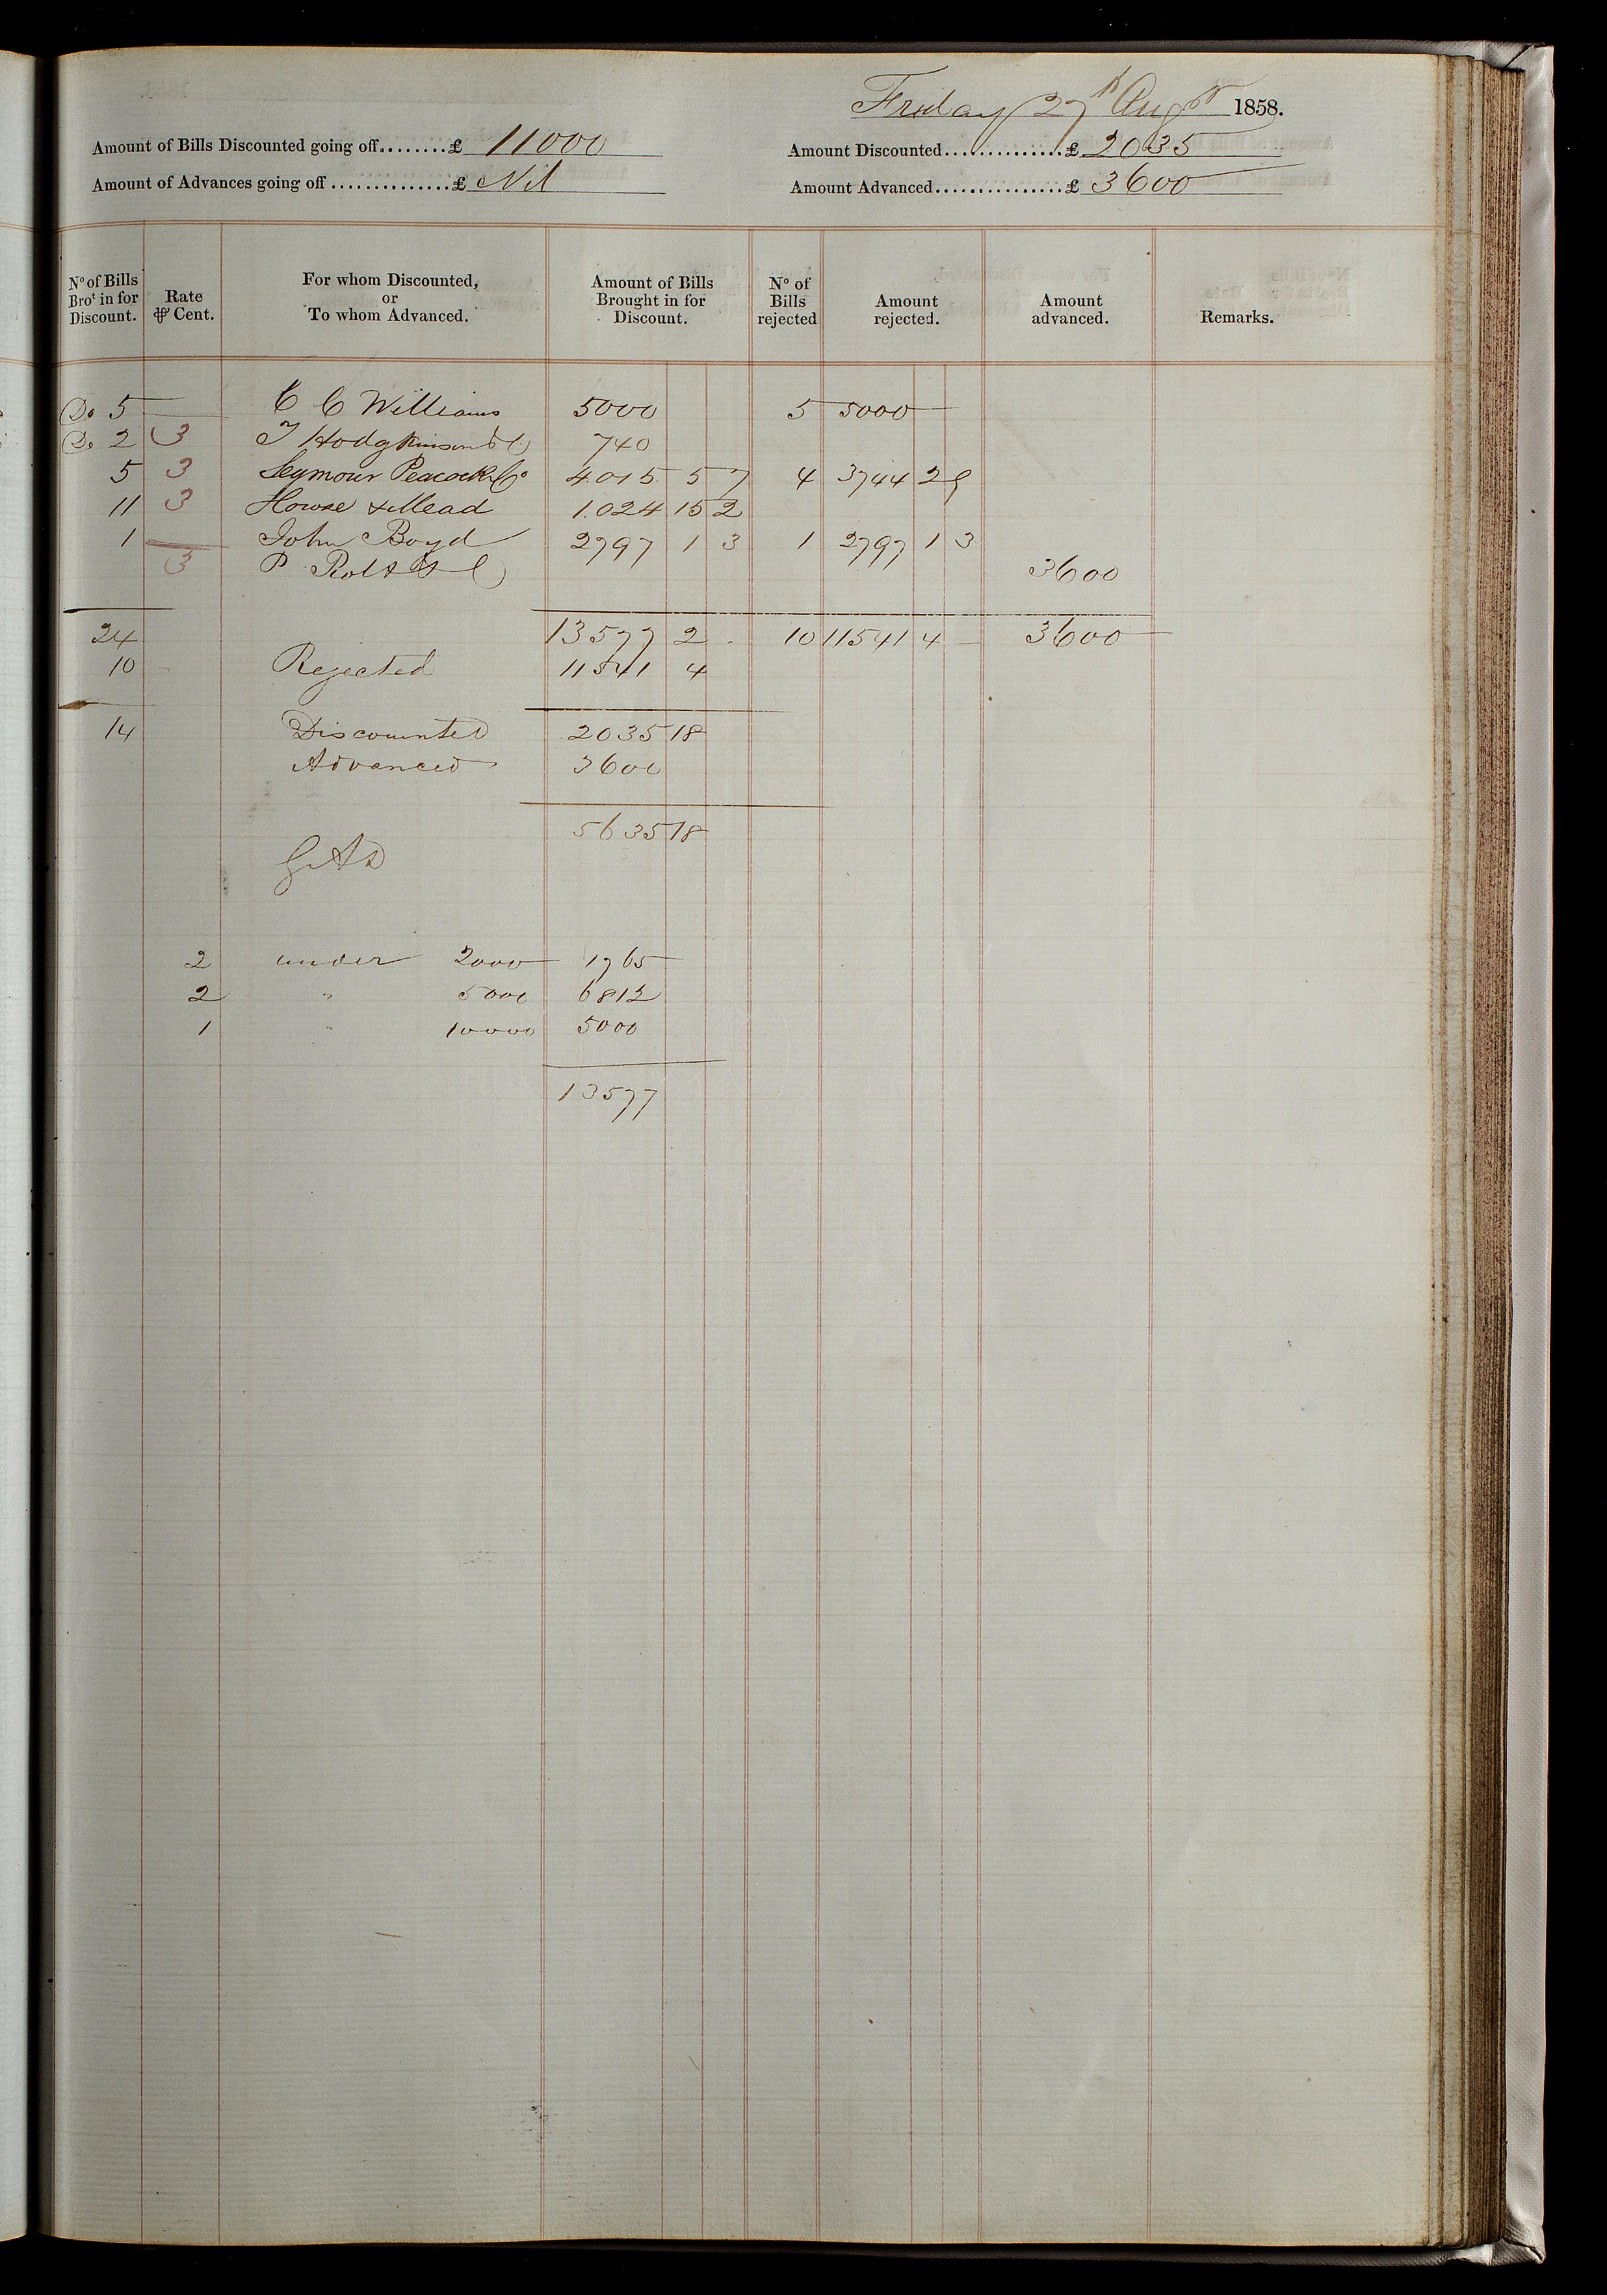 Friday 27th Augst 1858.
Amount of Bills Discounted going off........£ 11000 Amount Discounted..............£ 2035
Amount of Advances going off...............£ Nil Amount Advanced................£ 3600
No of Bills Brot in for Discount. Rate ⅌ Cent. For whom Discounted, or To whom Advanced. Amount of Bills Brought in for Discount. No of Bills rejected Amount rejected. Amount advanced. Remarks.
Do 5 — C C Williams 5000 5 5000
Do 2 3 T Hodgkinson & C 740
5 3 Seymour Peacock & Co 4015 5 7 4 3744 2 9
11 3 Howse & Mead 1024 15 2
1 — John Boyd 2797 1 3 1 2797 1 3
3 P Rolt & C 3600
24 13577 2 - 10 11541 4 - 3600
10 - Rejected 11541 4
14 Discounted 2035 18
Advanced 3600
5635 18
2 under 2000 1765
2 " 5000 6812
1 " 10000 5000
13577